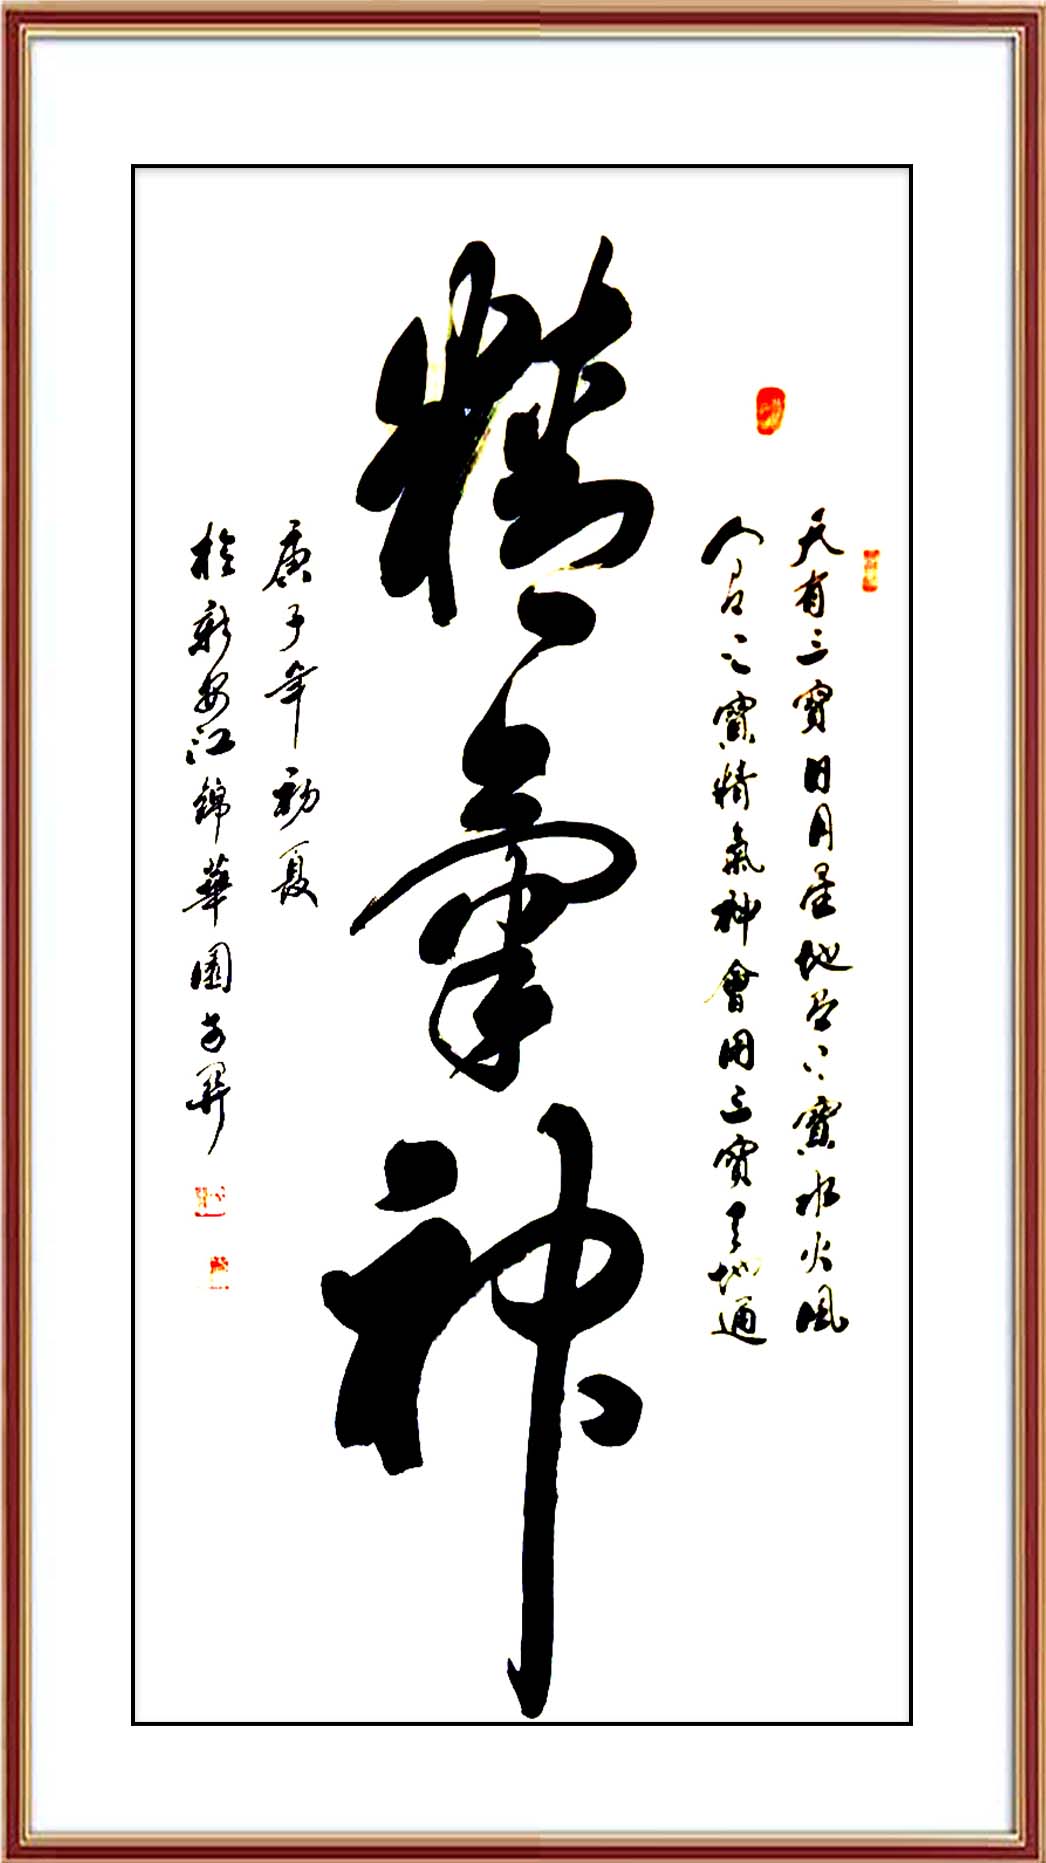 天有三寶日月星地有三寶水火風
人有三寶精氣神會用三寶天地通
精氣神
庚子年初夏
於新安江錦華園